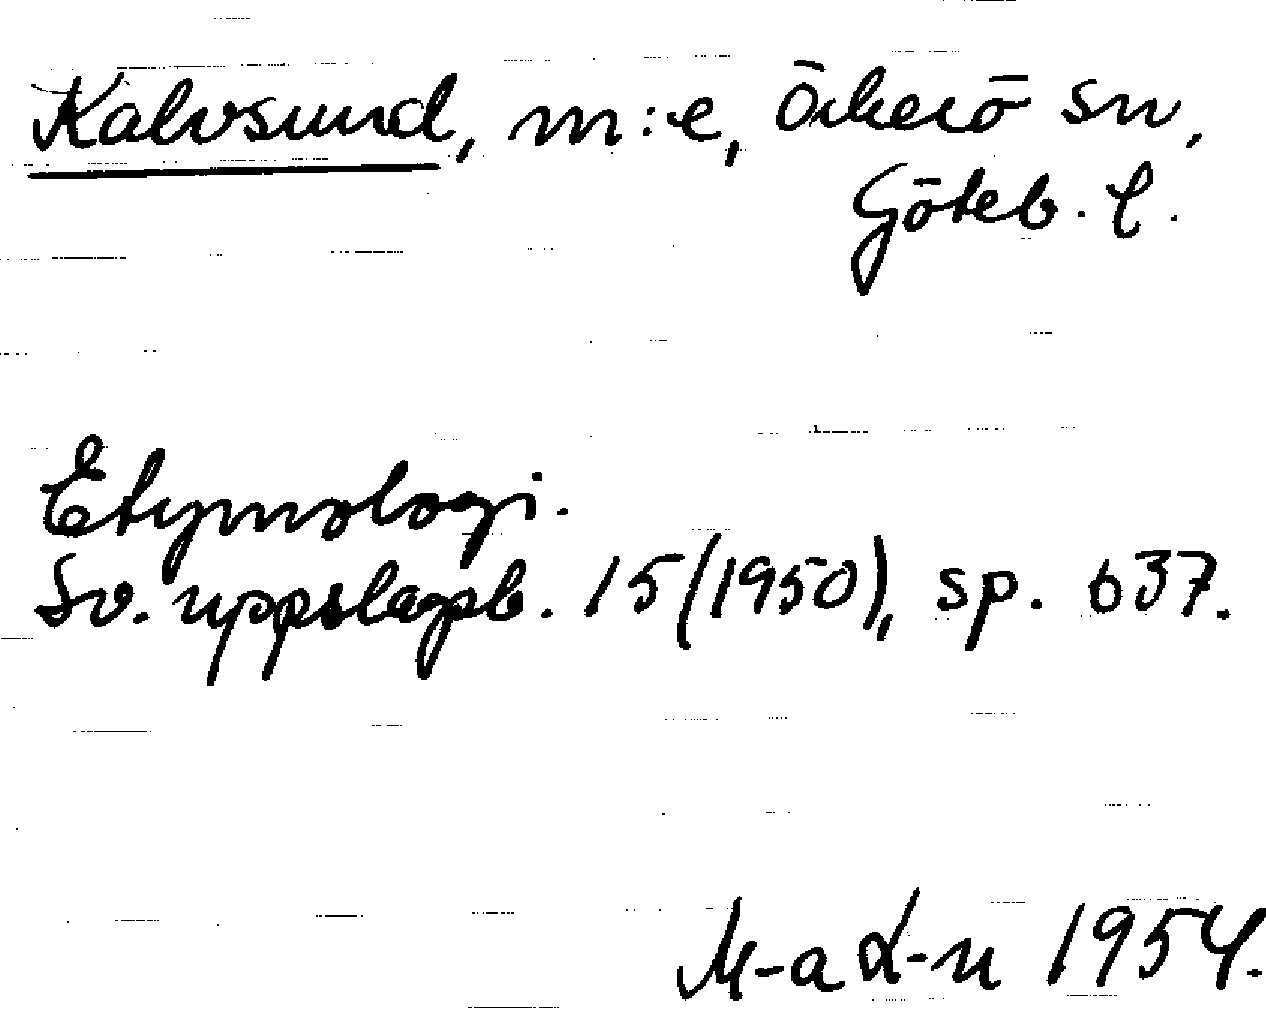 Kalvsund, m:e, Öckerö sn,
Göteb. l.
Etymologi.
Sv. uppslagsb. 15 (1950), sp. 637.
M-a L-n 1954.